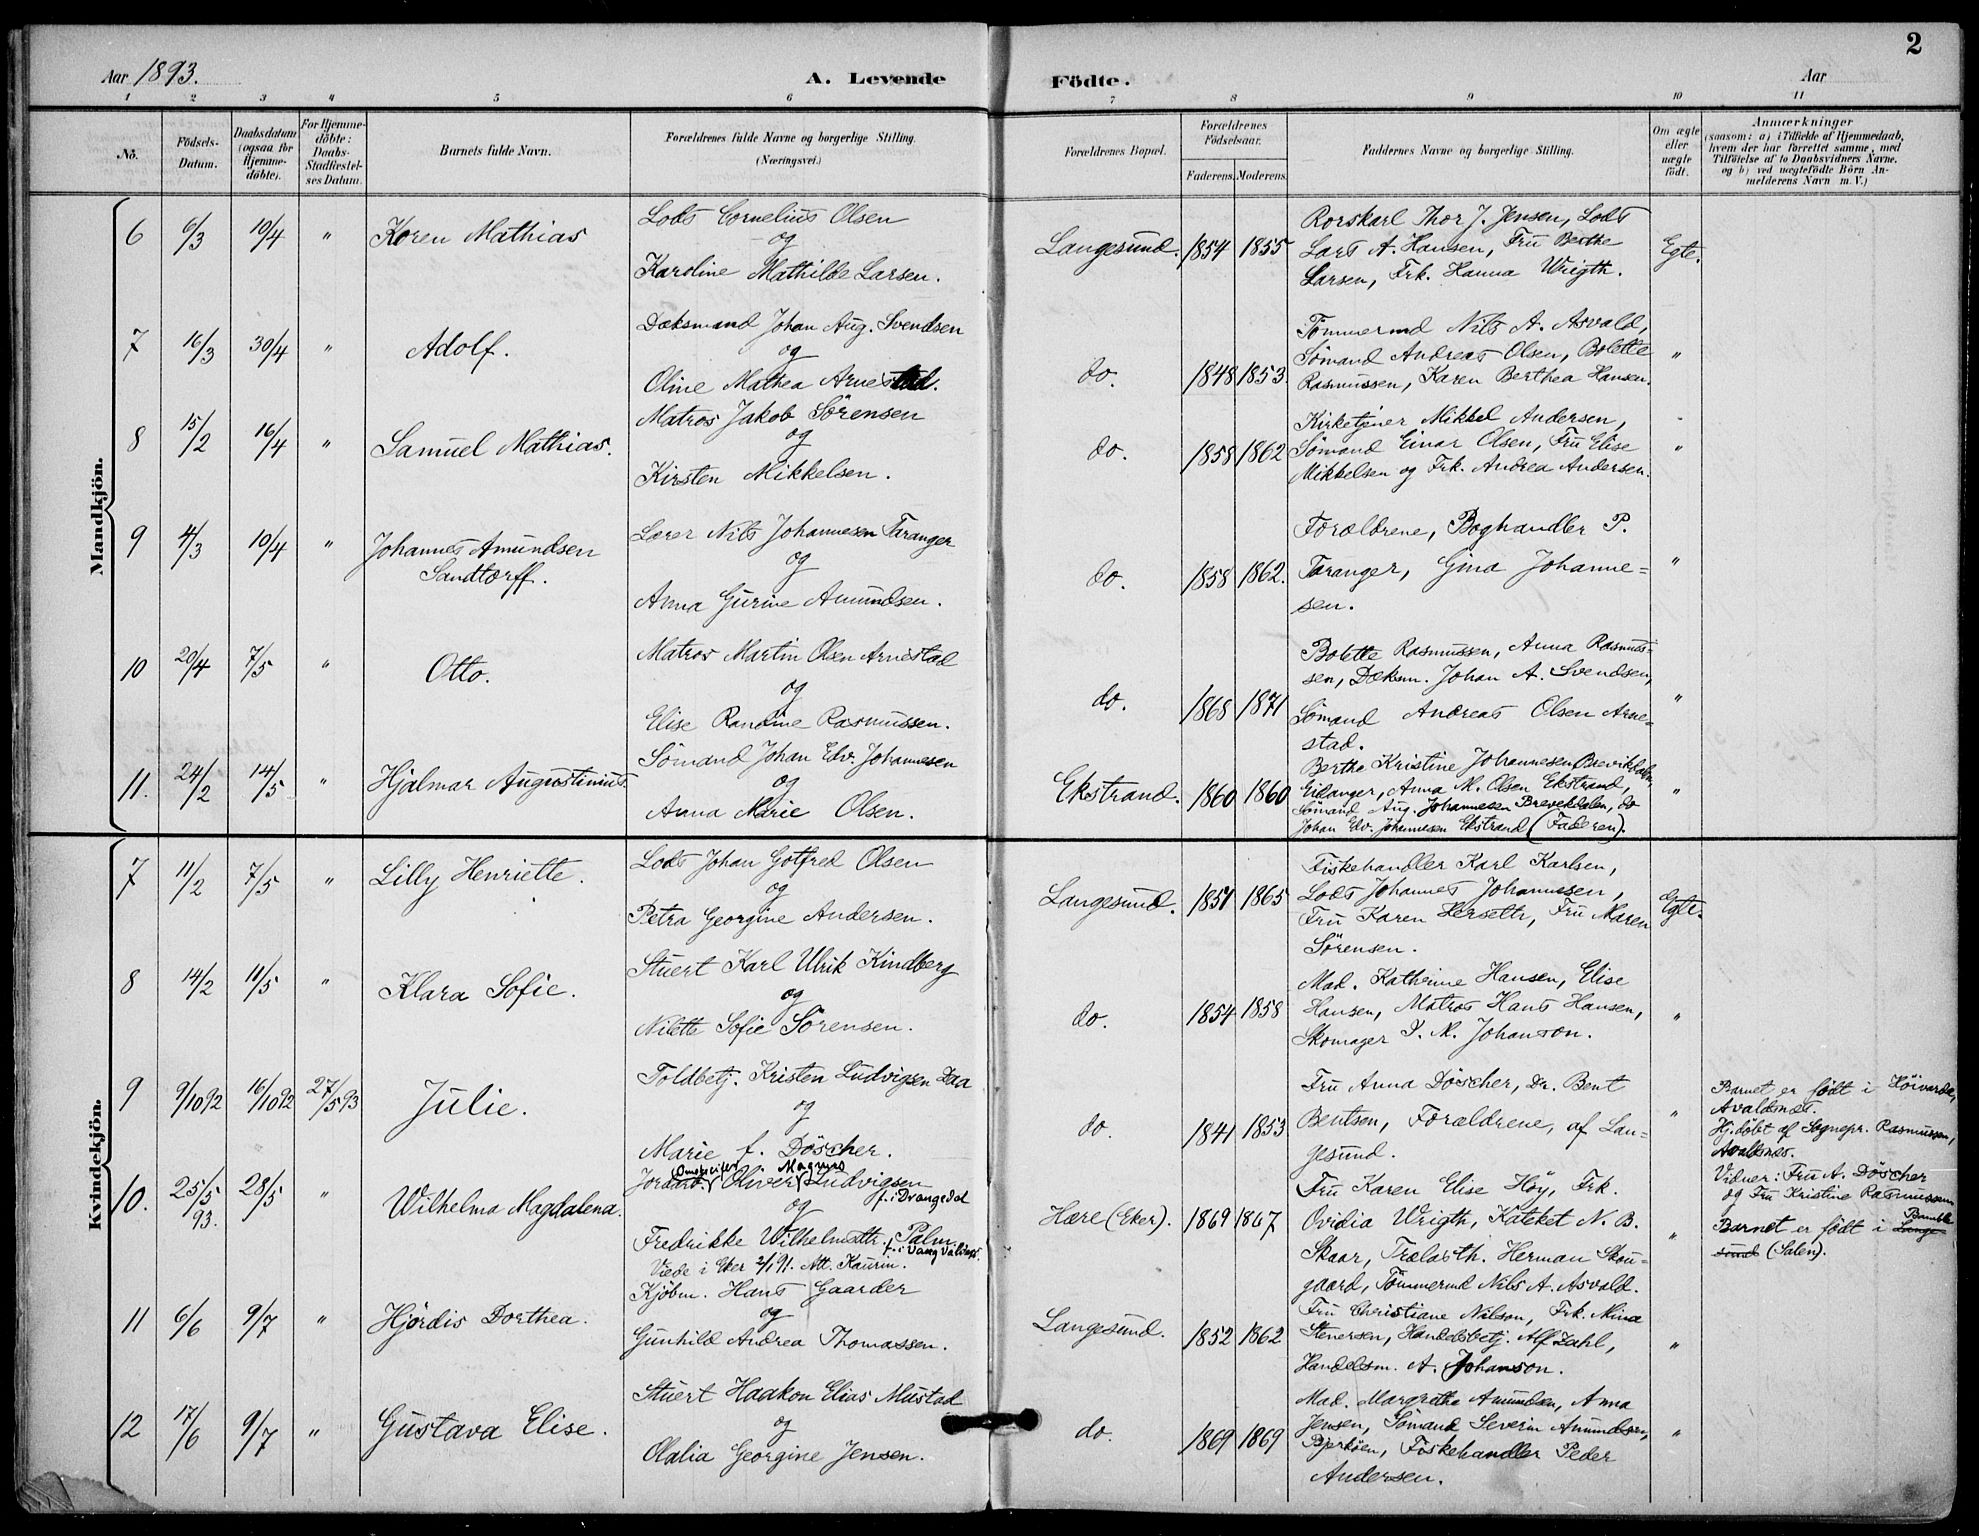 2
Aar 1893.
A. Levende Födte.
Aar
1 2 3 4 5 6 7 8 9 10 11
No.
Födsels-
Datum.
Daabsdatum
(ogsaa for
Hjemme-
döbte).
For Hjemme-
döbte:
Daabs-
Stadfæstel-
ses Datum.
Barnets fulde Navn.
Forældrenes fulde Navne og borgerlige Stilling.
(Næringsvei.)
Forældrenes Bopæl.
Forældrenes
Födselsaar.
Faderens.
Moderens.
Faddernes Navne og borgerlige Stilling.
Om ægte
eller
uægte
født.
Anmærkninger
(saasom: a) i Tilfælde af Hjemmedaab,
hvem der har forrettet samme, med
Tilföielse af to Daabsvidners Navne.
og b) ved uægtefödte Börn An-
melderens Navn m. V.)
Mandkjön.
6 6/3 10/4 " Koren Mathias
Lods Cornelius Olsen
og
Karoline Mathilde Larsen.
Langesund. 1854 1855
Rorskarl Thor J. Jensen, Lods
Lars A. Hansen, Fru Berthe
Larsen, Frk. Hanna Wrigth.
Egte.
7 16/3 30/4 " Adolf.
Dæksmand Johan Aug. Svendsen
og
Oline Mathea Arnestad.
do. 1848 1853
Tømmermd Nils A. Asvald,
Sømand Andreas Olsen, Bolette
Rasmussen, Karen Berthea Hansen.
"
8 15/2 16/4 " Samuel Mathias.
Matros Jakob Sörensen
og
Kirsten Mikkelsen.
do. 1858 1862
Kirketjener Mikkel Andersen,
Sømand Einar Olsen, Fru Elise
Mikkelsen og Frk. Andrea Andersen.
"
9 4/3 10/4 " Johannes Amundsen
Sandtorff.
Lærer Nils Johannesen Taranger
og
Anna Gurine Amundsen.
do. 1858 1862.
Forældrene, Boghandler P.
Taranger, Gina Johanne=
sen.
"
10 20/4 7/5 " Otto.
Matros Martin Olsen Arnestad
og
Elise Randine Rasmussen.
do. 1868 1871
Bolette Rasmussen, Anna Rasmus=
sen, Dæksm. Johan A. Svendsen,
Sømand Andreas Olsen Arne=
stad.
"
11. 24/2 14/5 " Hjalmar Augustinius.
Sömand Johan Edv. Johannesen
og
Anna Marie Olsen.
Ekstrand. 1860 1860
Berthe Kristine Johannesen Brevikdalen,
Eidanger, Anna M. Olsen Ekstrand,
Sömand Aug. Johannesen Brevekdalen, do
Johan Edv. Johannesen Ekstrand (Faderen).
"
Kvindekjön.
7 11/2 7/5 " Lilly Henriette.
Lods Johan Gotfred Olsen
og
Petra Georgine Andersen.
Langesund. 1851 1865
Fiskehandler Karl Karlsen,
Lods Johannes Johannesen,
Fru Karen Herseth, Fru Maren
Sörensen.
Egte.
8 14/2 11/5 " Klara Sofie.
Stuert Karl Ulrik Kindberg
og
Nilette Sofie Sörensen.
do. 1854 1858
Mad. Kathrine Hansen, Elise
Hansen, Matros Hans Hansen,
Skomager P. M. Johanson.
"
9 9/10 92 16/10 92 27/5 93 Julie.
Toldbetj. Kristen Ludvigsen Daa
og
Marie f. Döscher.
do. 1841 1853
Fru Anna Döscher, Dr. Bent
Bentsen, Forældrene, af Lan=
gesund.
"
Barnet er født i Höivarde,
Avaldsnes.
Hj.döbt af Sognepr. Rasmussen,
Avaldsnes.
Vidner: Fru A. Döscher
og Fru Kristine Rasmussen
10. 25/5 93. 28/5 " Wilhelma Magdalena.
Oliver Magnus Ludvigsen
f. i Drangedal
og
Fredrikke Wilhelm Palm
f. i Vang Valdres.
Viede i Eker 2/1 91. Att. Kaurin.
Hære (Eker). 1869 1867
Fru Karen Elise Höy, Frk.
Ovidia Wrigth, Kateket N. B.
Skaar, Trælasth. Herman Skou=
gaard, Tömmermd Nils A. Asvald.
"
Barnet er født i Lange-
sund Bamble (Salen).
11 6/6 9/7 " Hjördis Dorthea.
Kjöbm. Hans Gaarder
og
Gunhild Andrea Thomassen.
Langesund. 1852 1862
Fru Christiane Nilson, Frk. Mina
Stenersen, Handelsbetj. Alf Zahl,
Handelsm. A. Johanson.
"
12 17/6 9/7 " Gustava Elise.
Stuert Haakon Elias Mustad
og
Olalia Georgine Jensen.
do. 1869 1869
Mad. Margrethe Amundsen, Anna
Jensen, Sömand Severin Amundsen,
Bjerköen, Fiskehandler Peder
Andersen.
"